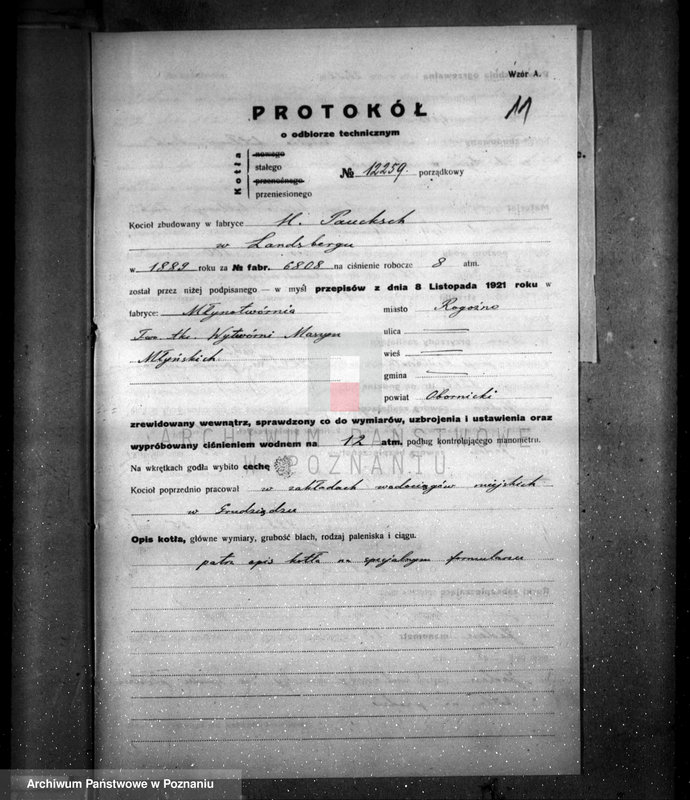 Wzór A.
11
PROTOKÓŁ
o odbiorze technicznym
Kotła
nowego
stałego
przenośnego
przeniesionego
№ 12259. porządkowy
Kocioł zbudowany w fabryce H. Paucksch
w Landsbergu
w 1889 roku za № fabr. 6808 na ciśnienie robocze 8 atm.
został przez niżej podpisanego — w myśl przepisów z dnia 8 Listopada 1921 roku w
fabryce: Młynotwórnia miasto Rogoźno
Tow. Wytwórni Maszyn ulica
Młyńskich wieś
gmina
powiat Obornicki
zrewidowany wewnątrz, sprawdzony co do wymiarów, uzbrojenia i ustawienia oraz
wypróbowany ciśnieniem wodnem na 12 atm. podług kontrolującego manometru.
ARCHIWUM PAŃSTWOWE
W POZNANIU
Na wkrętkach godła wybito cechę
Kocioł poprzednio pracował w zakładach wodociągów miejskich
w Grudziądzu
Opis kotła, główne wymiary, grubość blach, rodzaj paleniska i ciągu.
patrz opis kotła na specjalnym formularzu
Archiwum Państwowe w Poznaniu